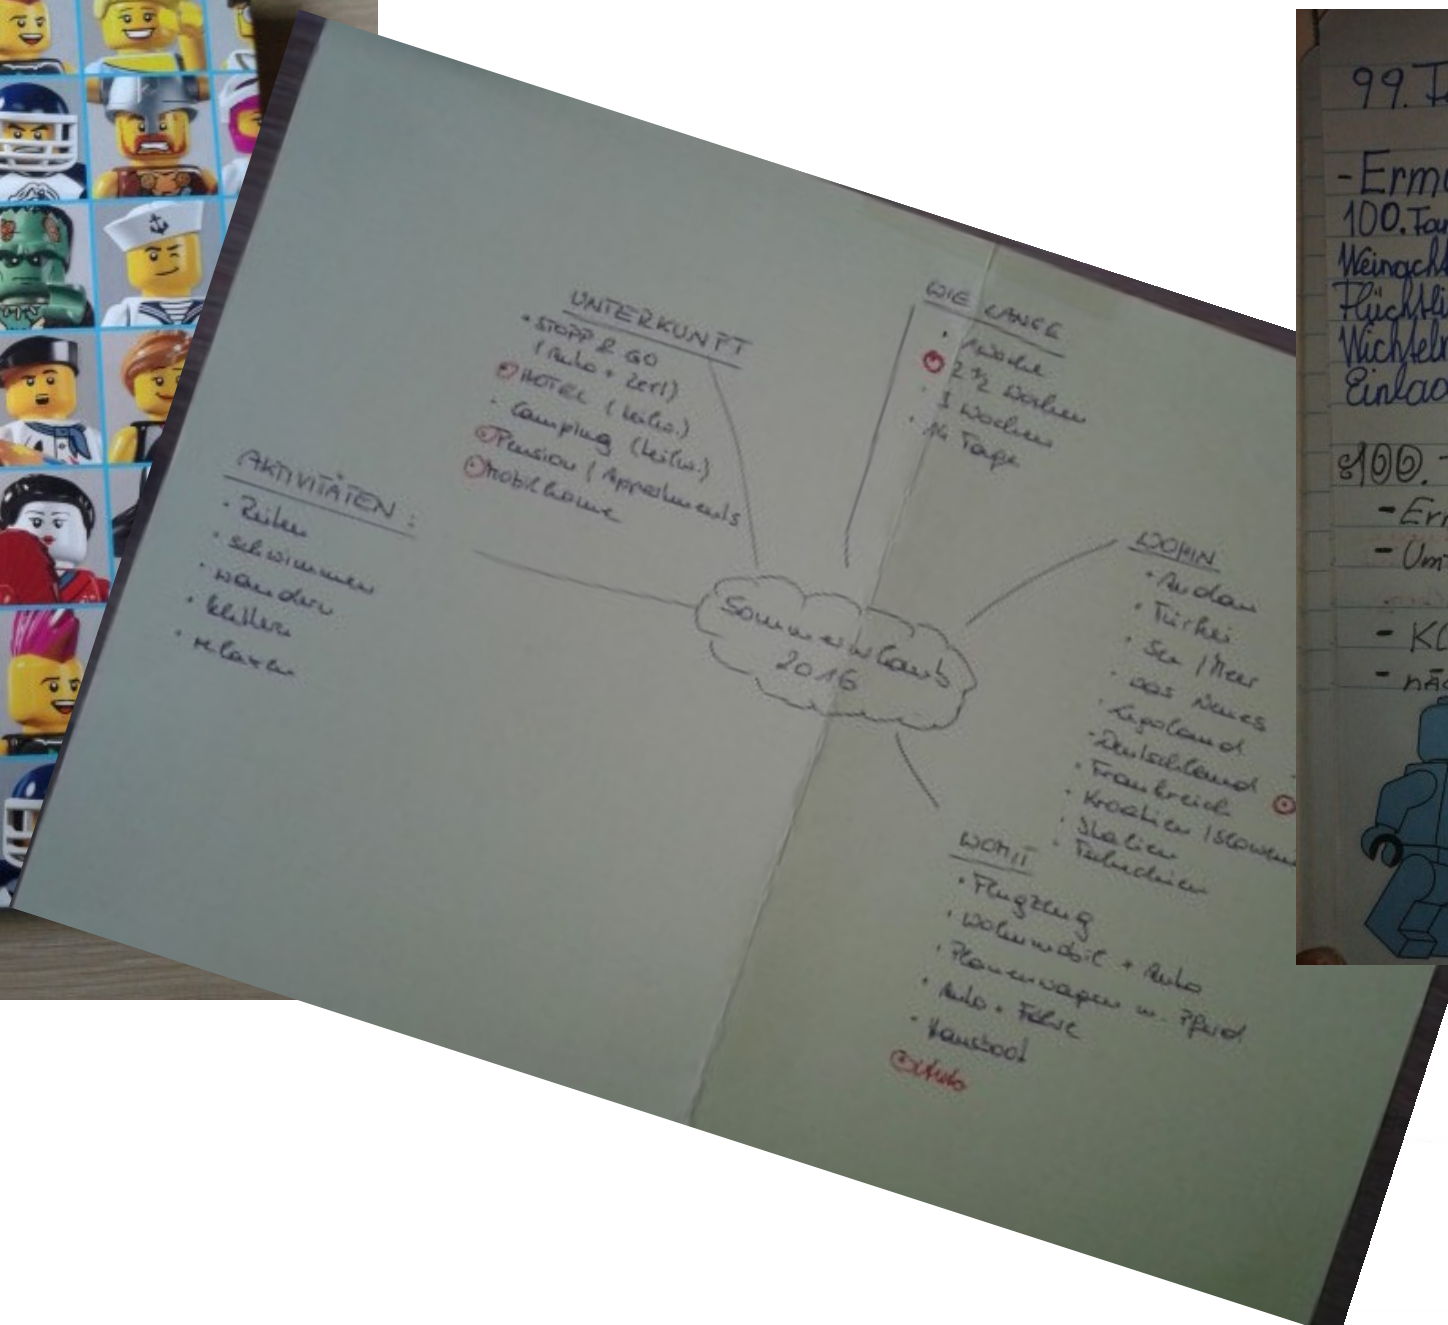 AKTIVITÄTEN:
· Reiten
· schwimmen
· wandern
· klettern
· relaxen
UNTERKUNFT
· STOPP & GO
(Auto + Zelt)
· HOTEL (teilw.)
· Camping (teilw.)
· Pension / Appartments
· Mobilhome
WIE LANGE
· 1 Woche
· 2 ½ Wochen
· 3 Wochen
· 14 Tage
Sommerurlaub
2016
WOHIN
· Andau
· Türkei
· See / Meer
· was Neues
· Legoland
· Deutschland
· Frankreich
· Kroatien / Sloweni
· Italien
· Tschechien
WOMIT
· Flugzeug
· Wohnmobil + Auto
· Planenwagen m. Pferd
· Auto + Fähre
· Hausboot
Auto
99. Fa
- Ermu
100. Fam
Weinacht
Flüchtli
Wichteln
Einlad
100.
- Er
- Um
- KL
- näc